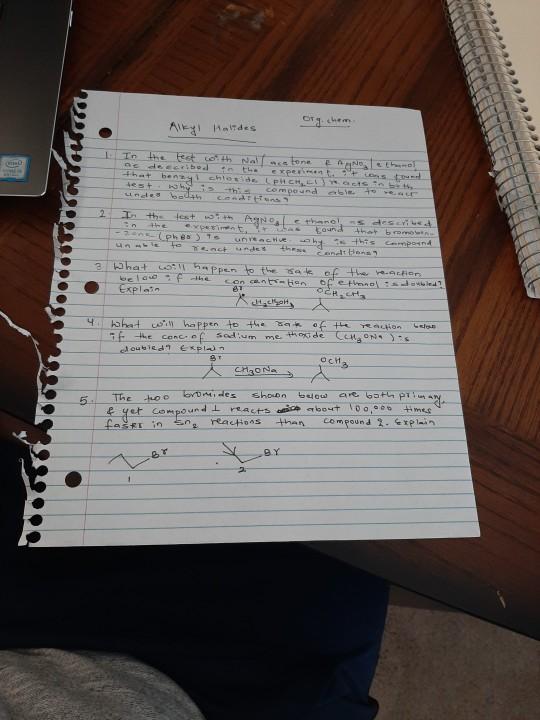 Org. chem.
Alkyl Halides
1. In the test with NaI / acetone & AgNO3 / ethanol
as described in the experiment, it was found
that benzyl chloride (pHCH2Cl) reacts in both
test. Why is this compound able to react
under both conditions?
2. In the test with AgNO3 / ethanol as described
in the experiment, it was found that bromobin-
-zene (phBr) is unreactive. why is this compound
unable to react under these conditions?
3 What will happen to the rate of the reaction
below if the concentration of ethanol is doubled?
Explain
Br CH3CH2OH OCH2CH3
4. What will happen to the rate of the reaction below
if the conc. of sodium methoxide (CH3ONa) is
doubled? Explain
Br CH3ONa OCH3
5. The two bromides shown below are both primary,
& yet compound 1 reacts about 100,000 times
faster in Sn2 reactions than compound 2. Explain
Br Br
1 2
intel